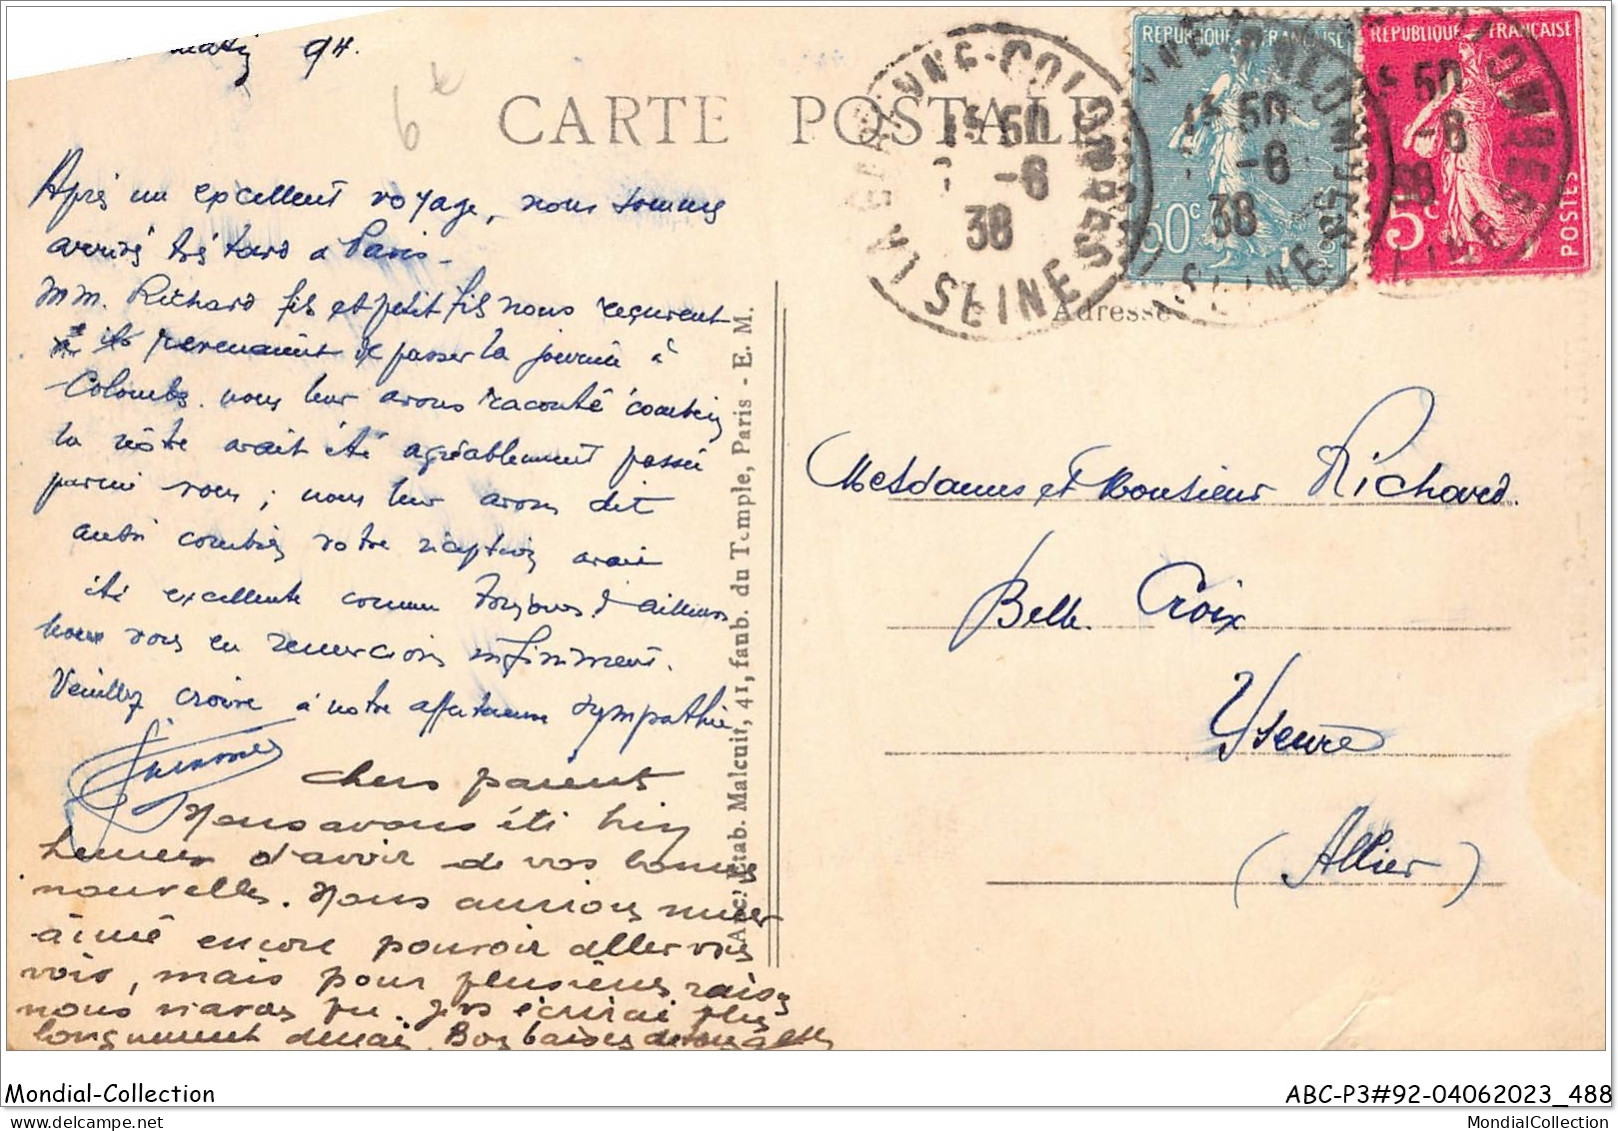 94.
6€
CARTE POSTALE
LA GARENNE-COLOMBES
1 50
-6
38
SEINE
REPUBLIQUE FRANÇAISE
50c
POSTES
REPUBLIQUE FRANÇAISE
5c
POSTES
Adresse
Après un excellent voyage, nous sommes
arrivés très tard à Paris.
MM. Richard fils et petit fils nous reçurent
ils revenaient de passer la journée à
Colombes. nous leur avons raconté combien
la nôtre avait été agréablement passée
parmi vous; nous leur avons dit
aussi combien votre réception avait
été excellente comme toujours d'ailleurs
nous vous en remercions infiniment.
Veuillez croire à notre affectueuse sympathie
Chers parents
Nous avons été bien
heureux d'avoir de vos bonnes
nouvelles. Nous aurions mieux
aimé encore pouvoir aller vous
voir, mais pour plusieurs raisons
nous n'avons pu. Je vs écrirai plus
longuement demain. Bons baisers de
Anc. Etab. Malcuit, 41, faub. du Temple, Paris - E. M.
Mesdames et Monsieur Richard.
Belle Croix
Yseure
(Allier)
Mondial-Collection
ABC-P3#92-04062023_488
MondialCollection.com